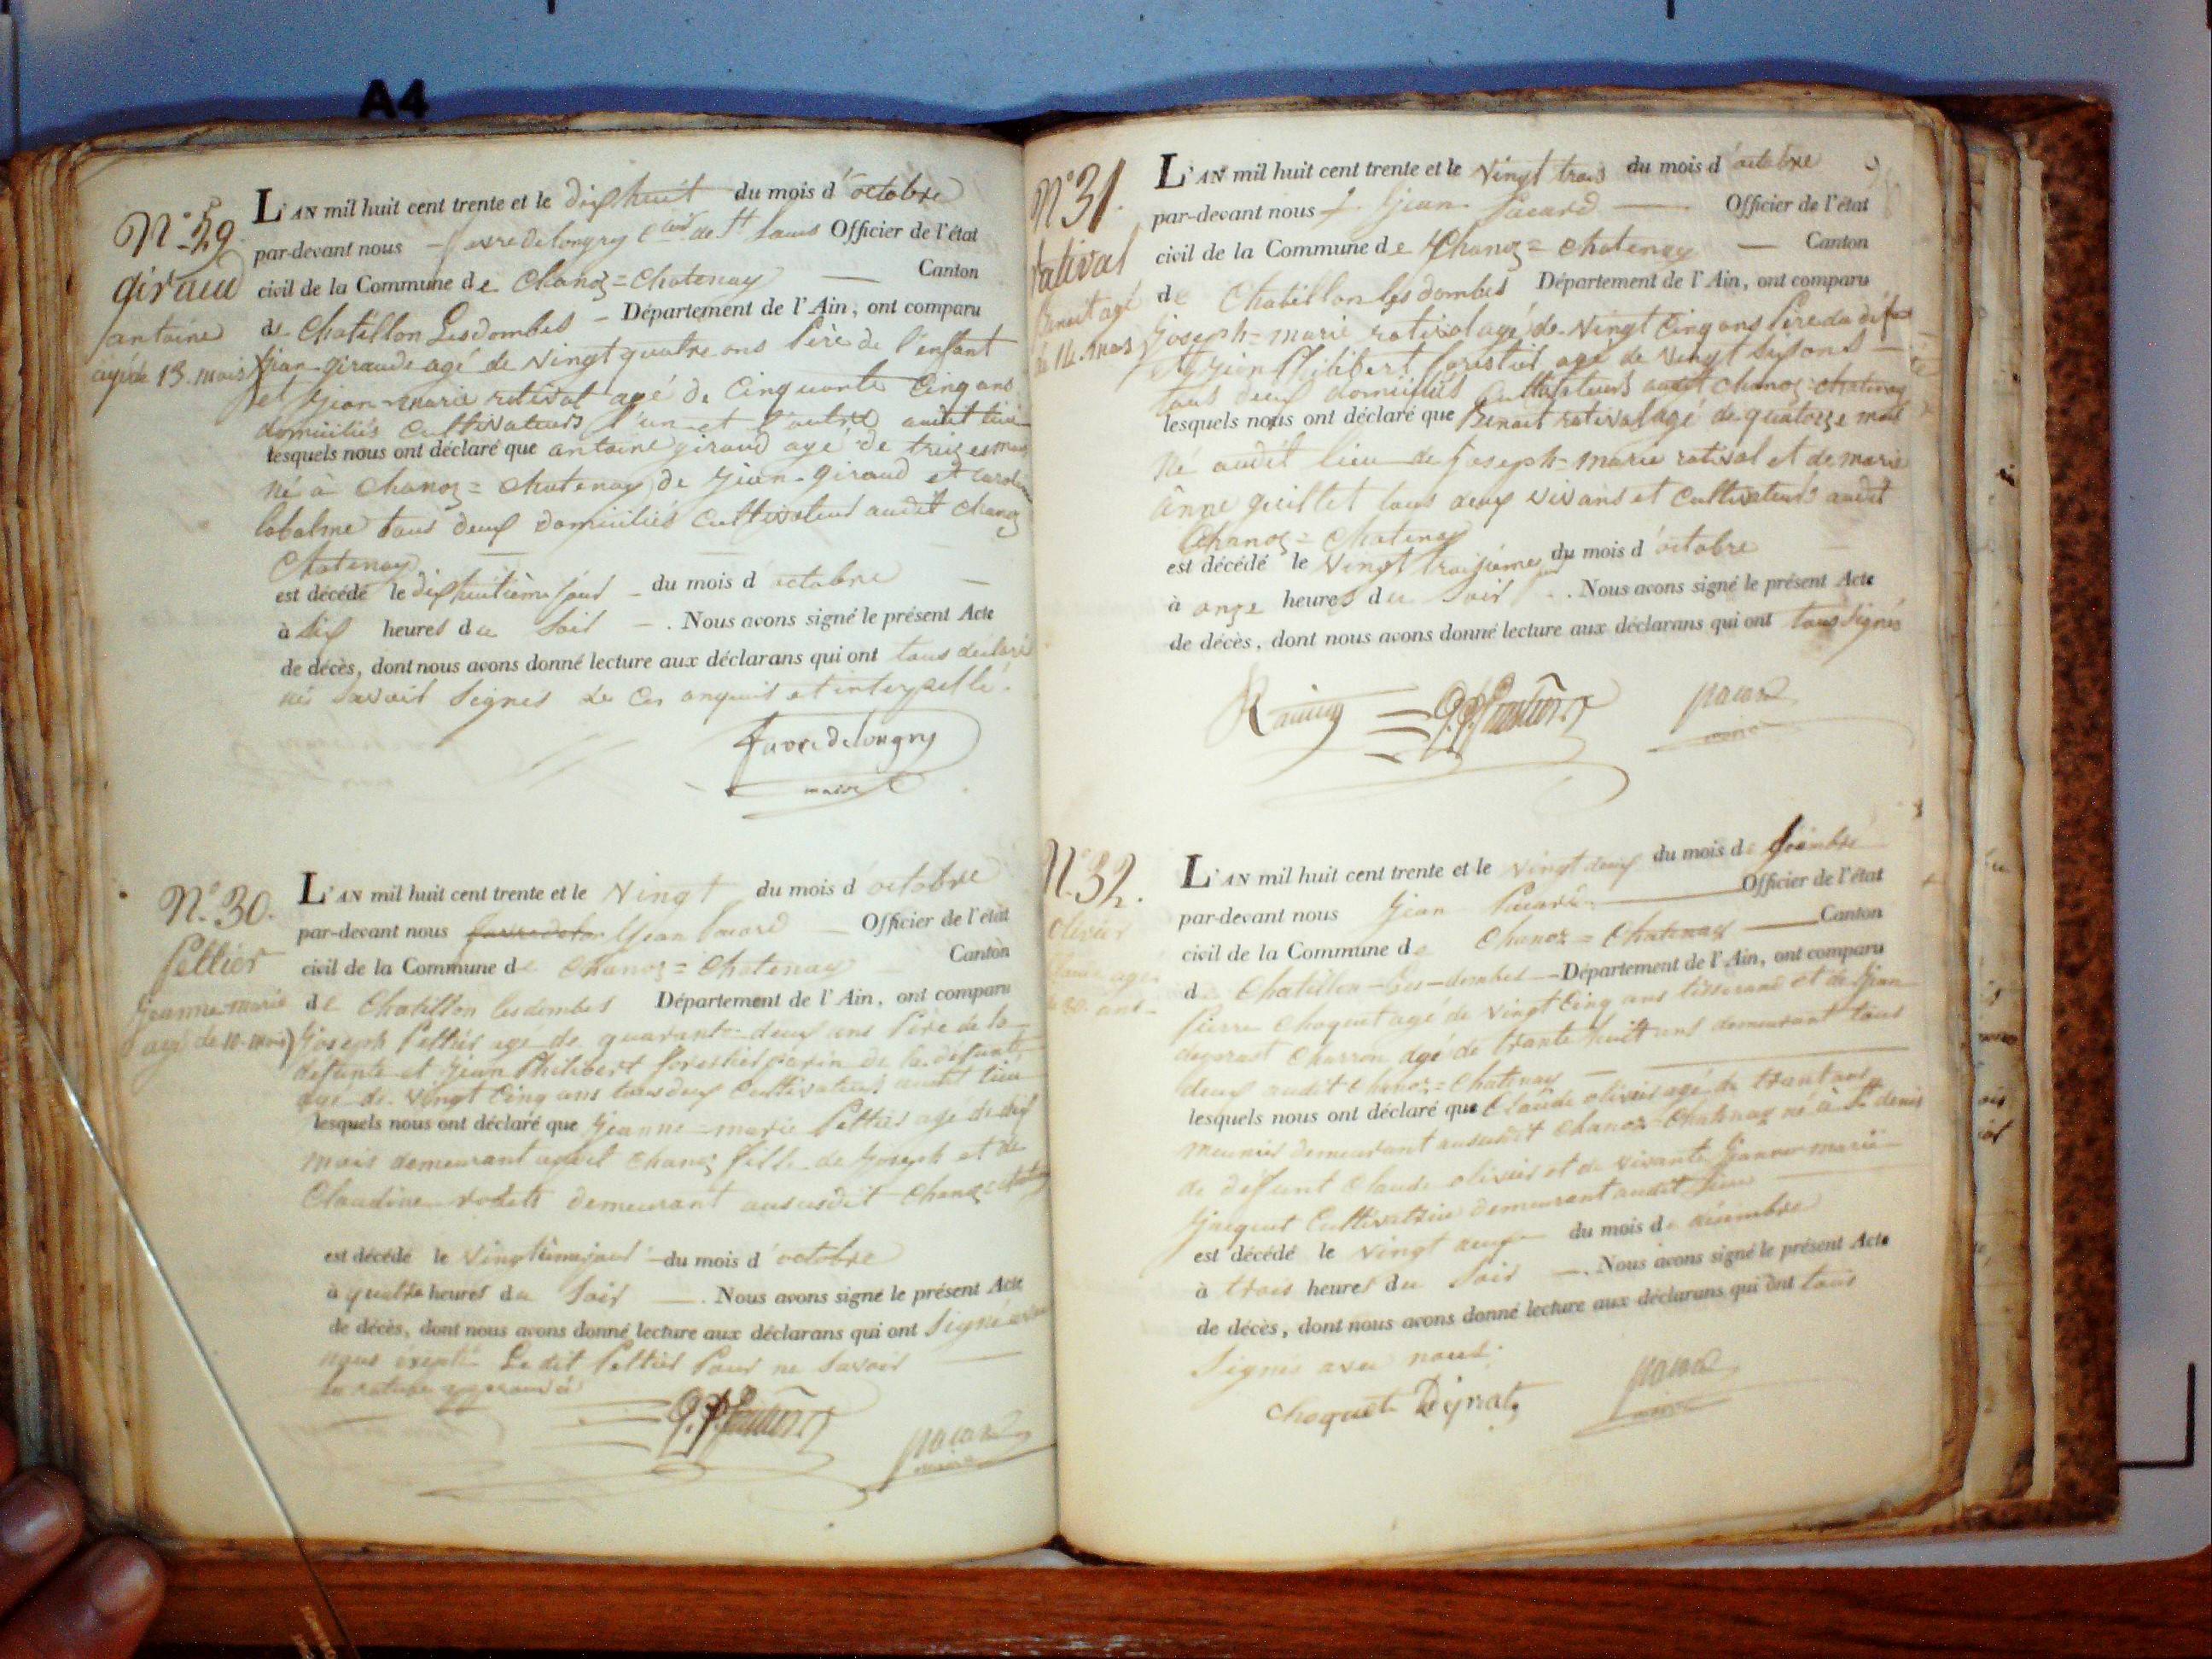 A4
N° 29.
giraud
antoine
agé de 13. mois
L'AN mil huit cent trente et le dixhuit du mois d'octobre
par-devant nous favre de longry de St Officier de l'état
civil de la Commune de Chanoz=Chatenay Canton
de Chatillon Lesdombes Département de l'Ain, ont comparu
Jean giraud agé de vingt quatre ans Père de l'enfant
et Jean marie rativat agé de Cinquante Cinq ans
domiciliés Cultivateurs l'un et l'autre audit lieu
lesquels nous ont déclaré que antoine giraud agé de treize mois
né à Chanoz=Chatenay de Jean giraud et
labalme tous deux domiciliés Cultivateurs audit Chanoz
Chatenay
est décédé le dixhuitième jour du mois d'octobre
à Six heures du Soir . Nous avons signé le présent Acte
de décès, dont nous avons donné lecture aux déclarans qui ont tous déclaré
né Savoir Signés de Ces enquis et interpellé.
favre de longry
maire
N° 30.
Pellier
Jeanne-marie
agé de 10. mois
L'AN mil huit cent trente et le Vingt du mois d'octobre
par-devant nous Jean Pacard Officier de l'état
civil de la Commune de Chanoz=Chatenay Canton
de Chatillon lesdombes Département de l'Ain, ont comparu
Joseph Pellier age de quarante-deux ans Père de la
défunte et Jean Philibert forestier parin de la défunte
agé de vingt Cinq ans tous deux Cultivateurs audit lieu
lesquels nous ont déclaré que Jeanne=marie Pellier agé de dix
mois demeurant audit Chanoz fille de Joseph et de
Claudine demeurant aususdit Chanoz
est décédé le Vingtième jour du mois d'octobre
à quatre heures du Soir . Nous avons signé le présent Acte
de décès, dont nous avons donné lecture aux déclarans qui ont Signé avec
nous éxepté Ledit Pellier Pour ne Savoir
pacard
maire
N° 31.
rativat
Benoit agé
de 14. mois
L'AN mil huit cent trente et le vingt trois du mois d'octobre
par-devant nous Jean Pacard Officier de l'état
civil de la Commune de Chanoz=Chatenay Canton
de Chatillon les dombes Département de l'Ain, ont comparu
Joseph=marie rativat agé de Vingt Cinq ans Père du
et Jean Philibert forestier agé de vingt Six ans
tous deux domiciliés Cultivateurs audit Chanoz=Chatenay
lesquels nous ont déclaré que Benoit rativat agé de quatorze mois
né audit lieu de Joseph-marie rativat et de marie
anne guillet tous deux vivans et Cultivateurs audit
Chanoz=Chatenay
est décédé le Vingt troisième jour du mois d'octobre
à onze heures du Soir . Nous avons signé le présent Acte
de décès, dont nous avons donné lecture aux déclarans qui ont tous Signés
pacard
maire
N° 32.
olivier
Claude agé
de 30. ans
L'AN mil huit cent trente et le vingt deux du mois de
par-devant nous Jean Pacard Officier de l'état
civil de la Commune de Chanoz=Chatenay Canton
de Chatillon-Les-dombes Département de l'Ain, ont comparu
Pierre Choquet agé de vingt Cinq ans tisserand et de Jean
Charron agé de trante huit ans demeurant tous
deux audit Chanoz=Chatenay
lesquels nous ont déclaré que Claude olivier agé de trant ans
meunier demeurant aususdit Chanoz=Chatenay né à St denis
de défunt Claude olivier et de vivante Jeanne marie
Jacquet Cultivatrice demeurant audit lieu
est décédé le vingt deux du mois de désembre
à trois heures du Soir . Nous avons signé le présent Acte
de décès, dont nous avons donné lecture aux déclarans qui ont tous
Signés avec nous.
Choquet
pacard
maire